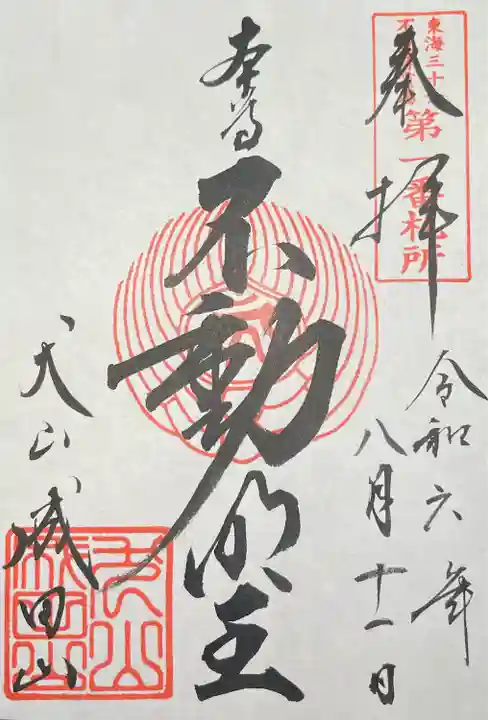 東海三十
不
第一番札所
奉拝
令和六年
八月十一日
本尊
不動明王
犬山成田山